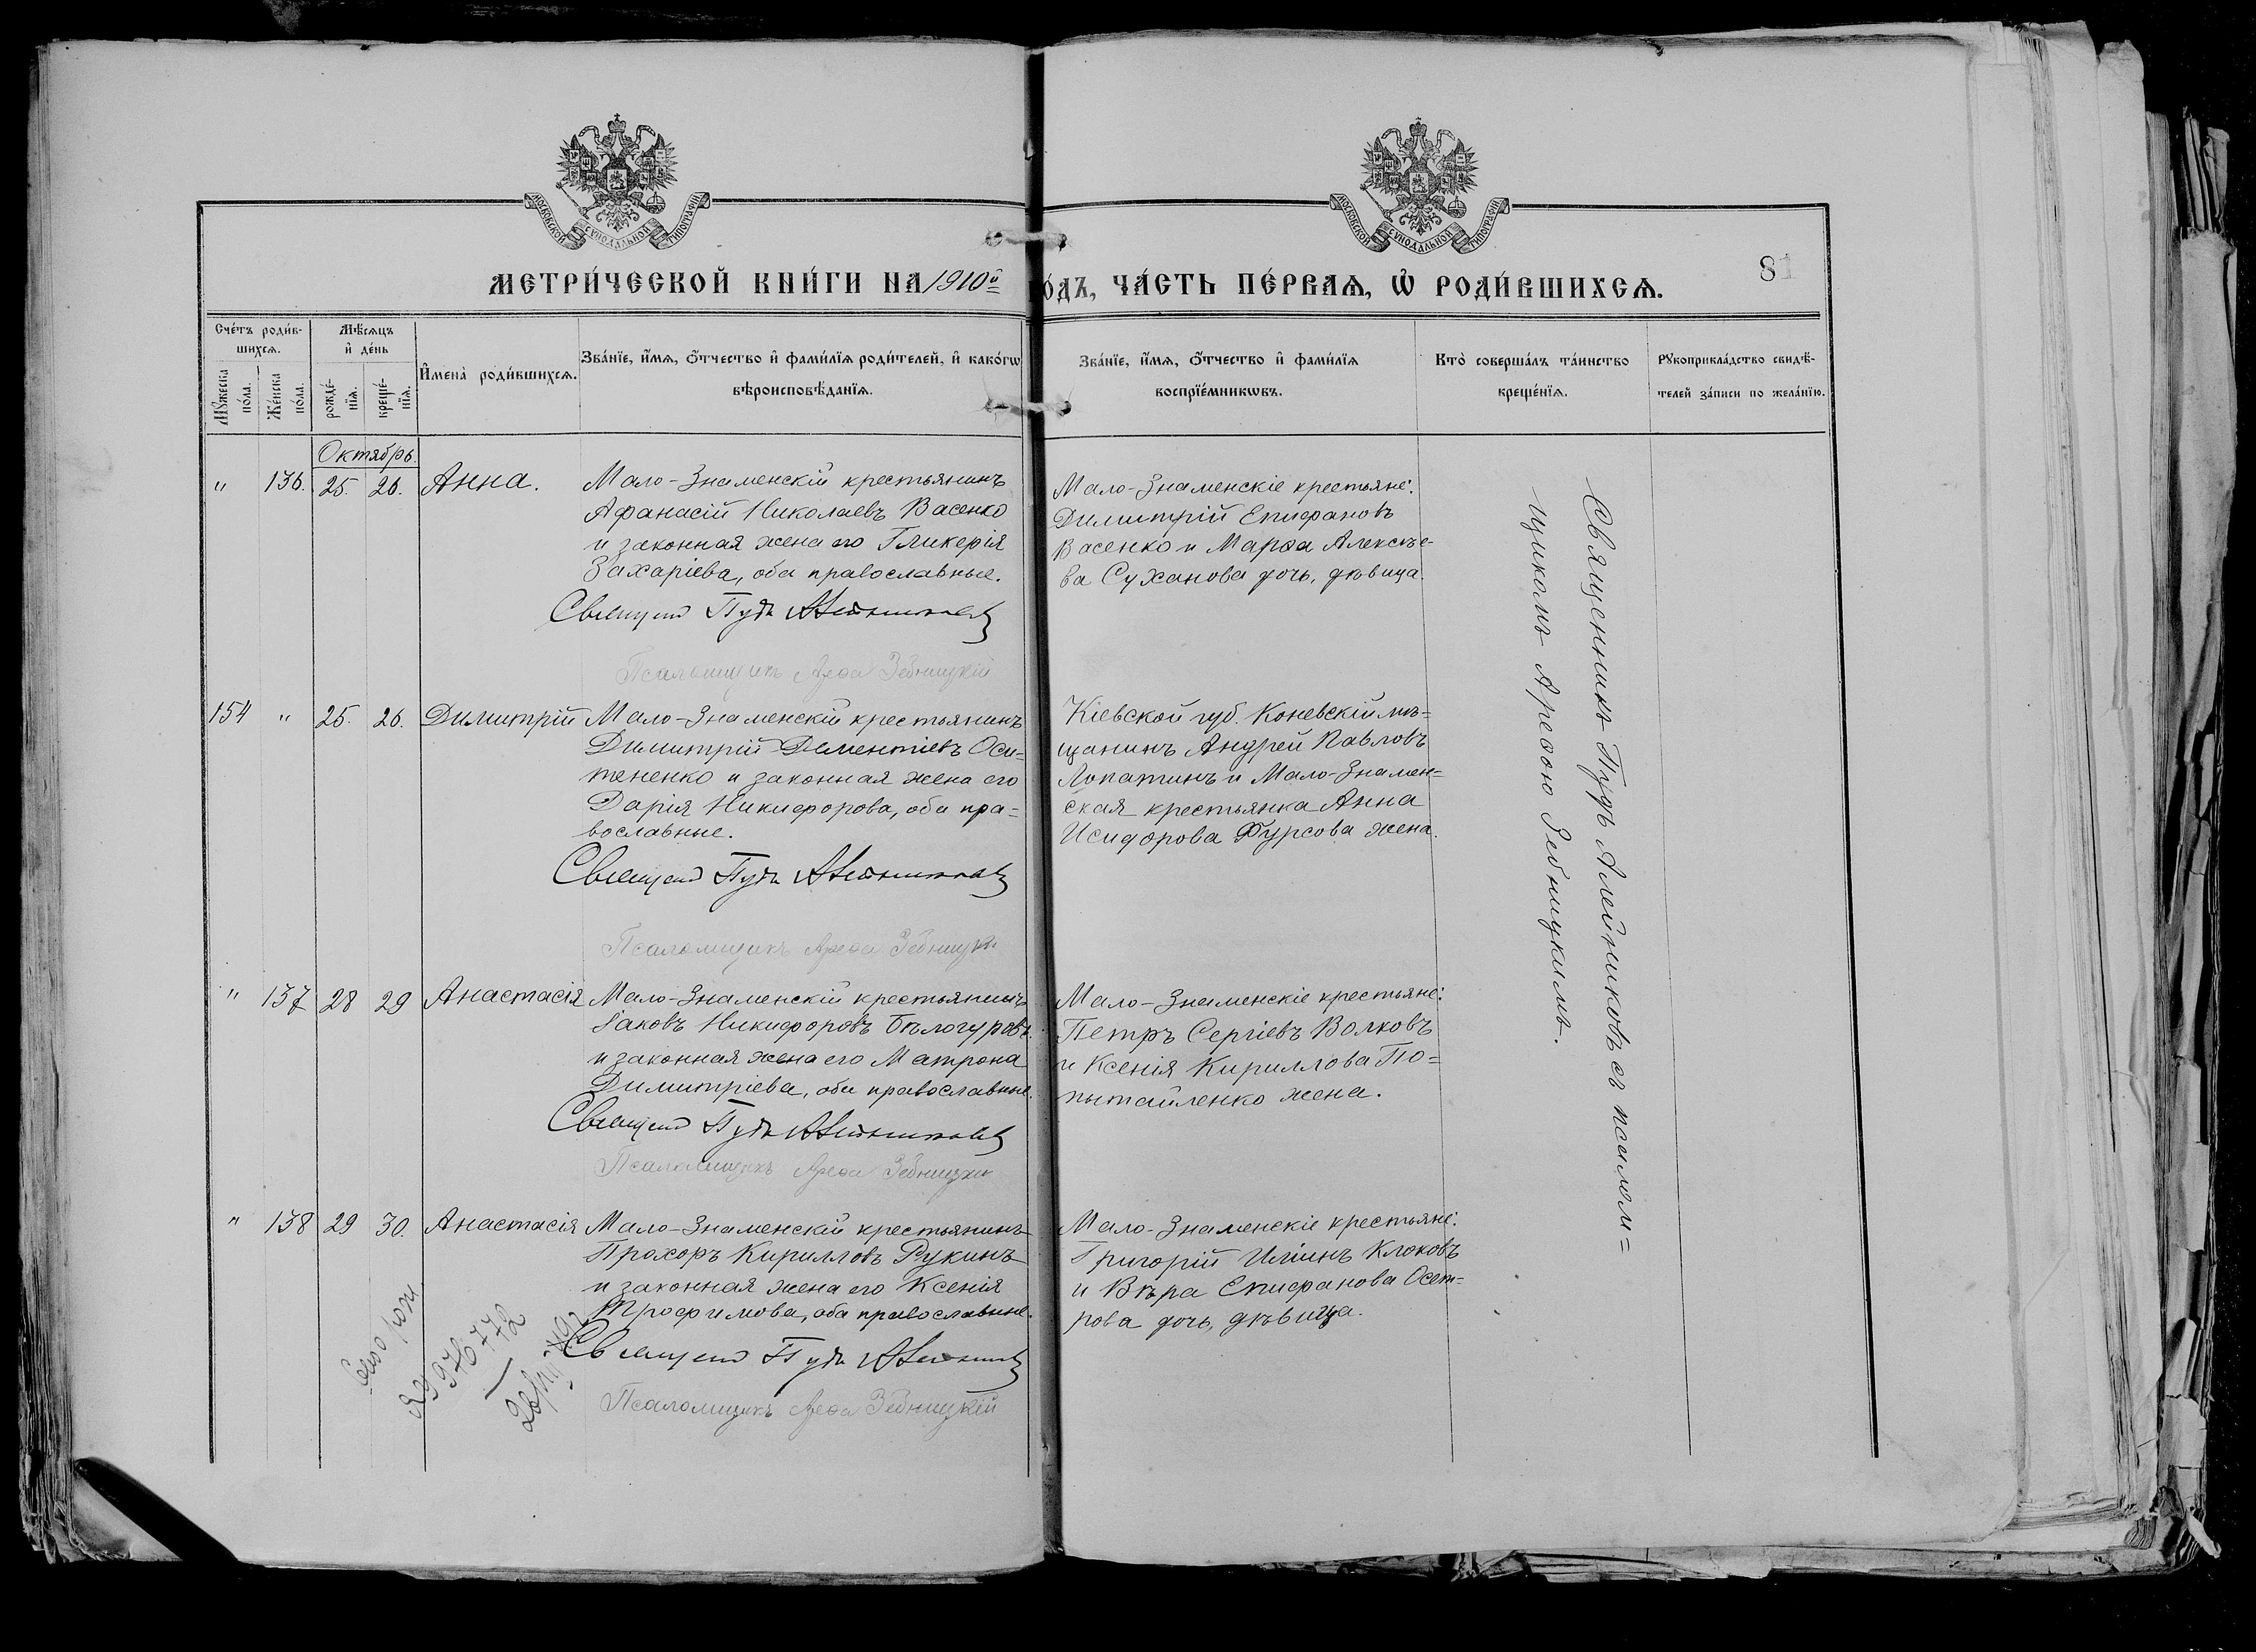 МОСКОВСКОЙ СѴНОДАЛЬНОЙ ТИПОГРАФІИ
МОСКОВСКОЙ СѴНОДАЛЬНОЙ ТИПОГРАФІИ
81
МЕТРИ́ЧЕСКОЙ КНИ́ГИ НА 1910й
О́ДЪ, ЧА́СТЬ ПЕ́РВАѦ, Ѡ҆ РОДИ́ВШИХСѦ.
Сче́тъ роди́в-
шихсѧ.
Мꙋ́жеска по́ла.
Же́нска по́ла.
Мѣ́сѧцъ
и҆ де́нь
рожде́-нїѧ.
креще́-нїѧ.
И҆мена̀ роди́вшихсѧ.
Зва́нїе, и҆́мѧ, ѻ҆́тчество и҆ фами́лїѧ роди́телей, и҆ како́гѡ
вѣроисповѣ́данїѧ.
Зва́нїе, и҆́мѧ, ѻ҆́тчество и҆ фами́лїѧ
воспрїе́мникѡвъ.
Кто̀ соверша́лъ та́инство
креще́нїѧ.
Рꙋкоприкла́дство свидѣ́-
телей за́писи по жела́нїю.
Октябрь.
" 136. 25. 26. Анна.
Мало-Знаменскій крестьянинъ
Афанасій Николаевъ Васенко
и законная жена его Гликерія
Захаріева, оба православные.
Священ Пудъ Алейниковъ
Псаломщикъ Арефа Зебницкій
Мало-Знаменскіе крестьяне:
Димитрій Епифановъ
Васенко и Марѳа Алексѣе-
ва Суханова дочь, дѣвица.
154 " 25. 26. Димитрій
Мало-Знаменскій крестьянинъ
Димитрій Дементіевъ Оси-
пененко и законная жена его
Дарія Никифорова, оба пра=
вославные.
Священ Пудъ Алейниковъ
Псаломщикъ Арефа Зебницкій
Кіевской губ. Коневскій мѣ=
щанинъ Андрей Павловъ
Лопатинъ и Мало-Знамен=
ская крестьянка Анна
Исидорова Фурсова жена.
" 137 28 29 Анастасія
Мало-Знаменскій крестьянинъ
Іаковъ Никифоровъ Бѣлогуровъ
и законная жена его Матрона
Димитріева, оба православные.
Священ Пудъ Алейниковъ
Псаломщикъ Арефа Зебницкій
Мало-Знаменскіе крестьяне:
Петръ Сергіевъ Волковъ
и Ксенія Кириллова По=
пытайленко жена.
" 138 29 30. Анастасія
Мало-Знаменскій крестьянинъ
Прохоръ Кирилловъ Рукинъ
и законная жена его Ксенія
Трофимова, оба православные.
Священ Пудъ Алейниковъ
Псаломщикъ Арефа Зебницкій
Мало-Знаменскіе крестьяне:
Григорій Иліинъ Клоковъ
и Вѣра Епифанова Осет=
рова дочь, дѣвица.
Священникъ Пудъ Алейниковъ съ псалом=
щикомъ Арефою Зебницкимъ.